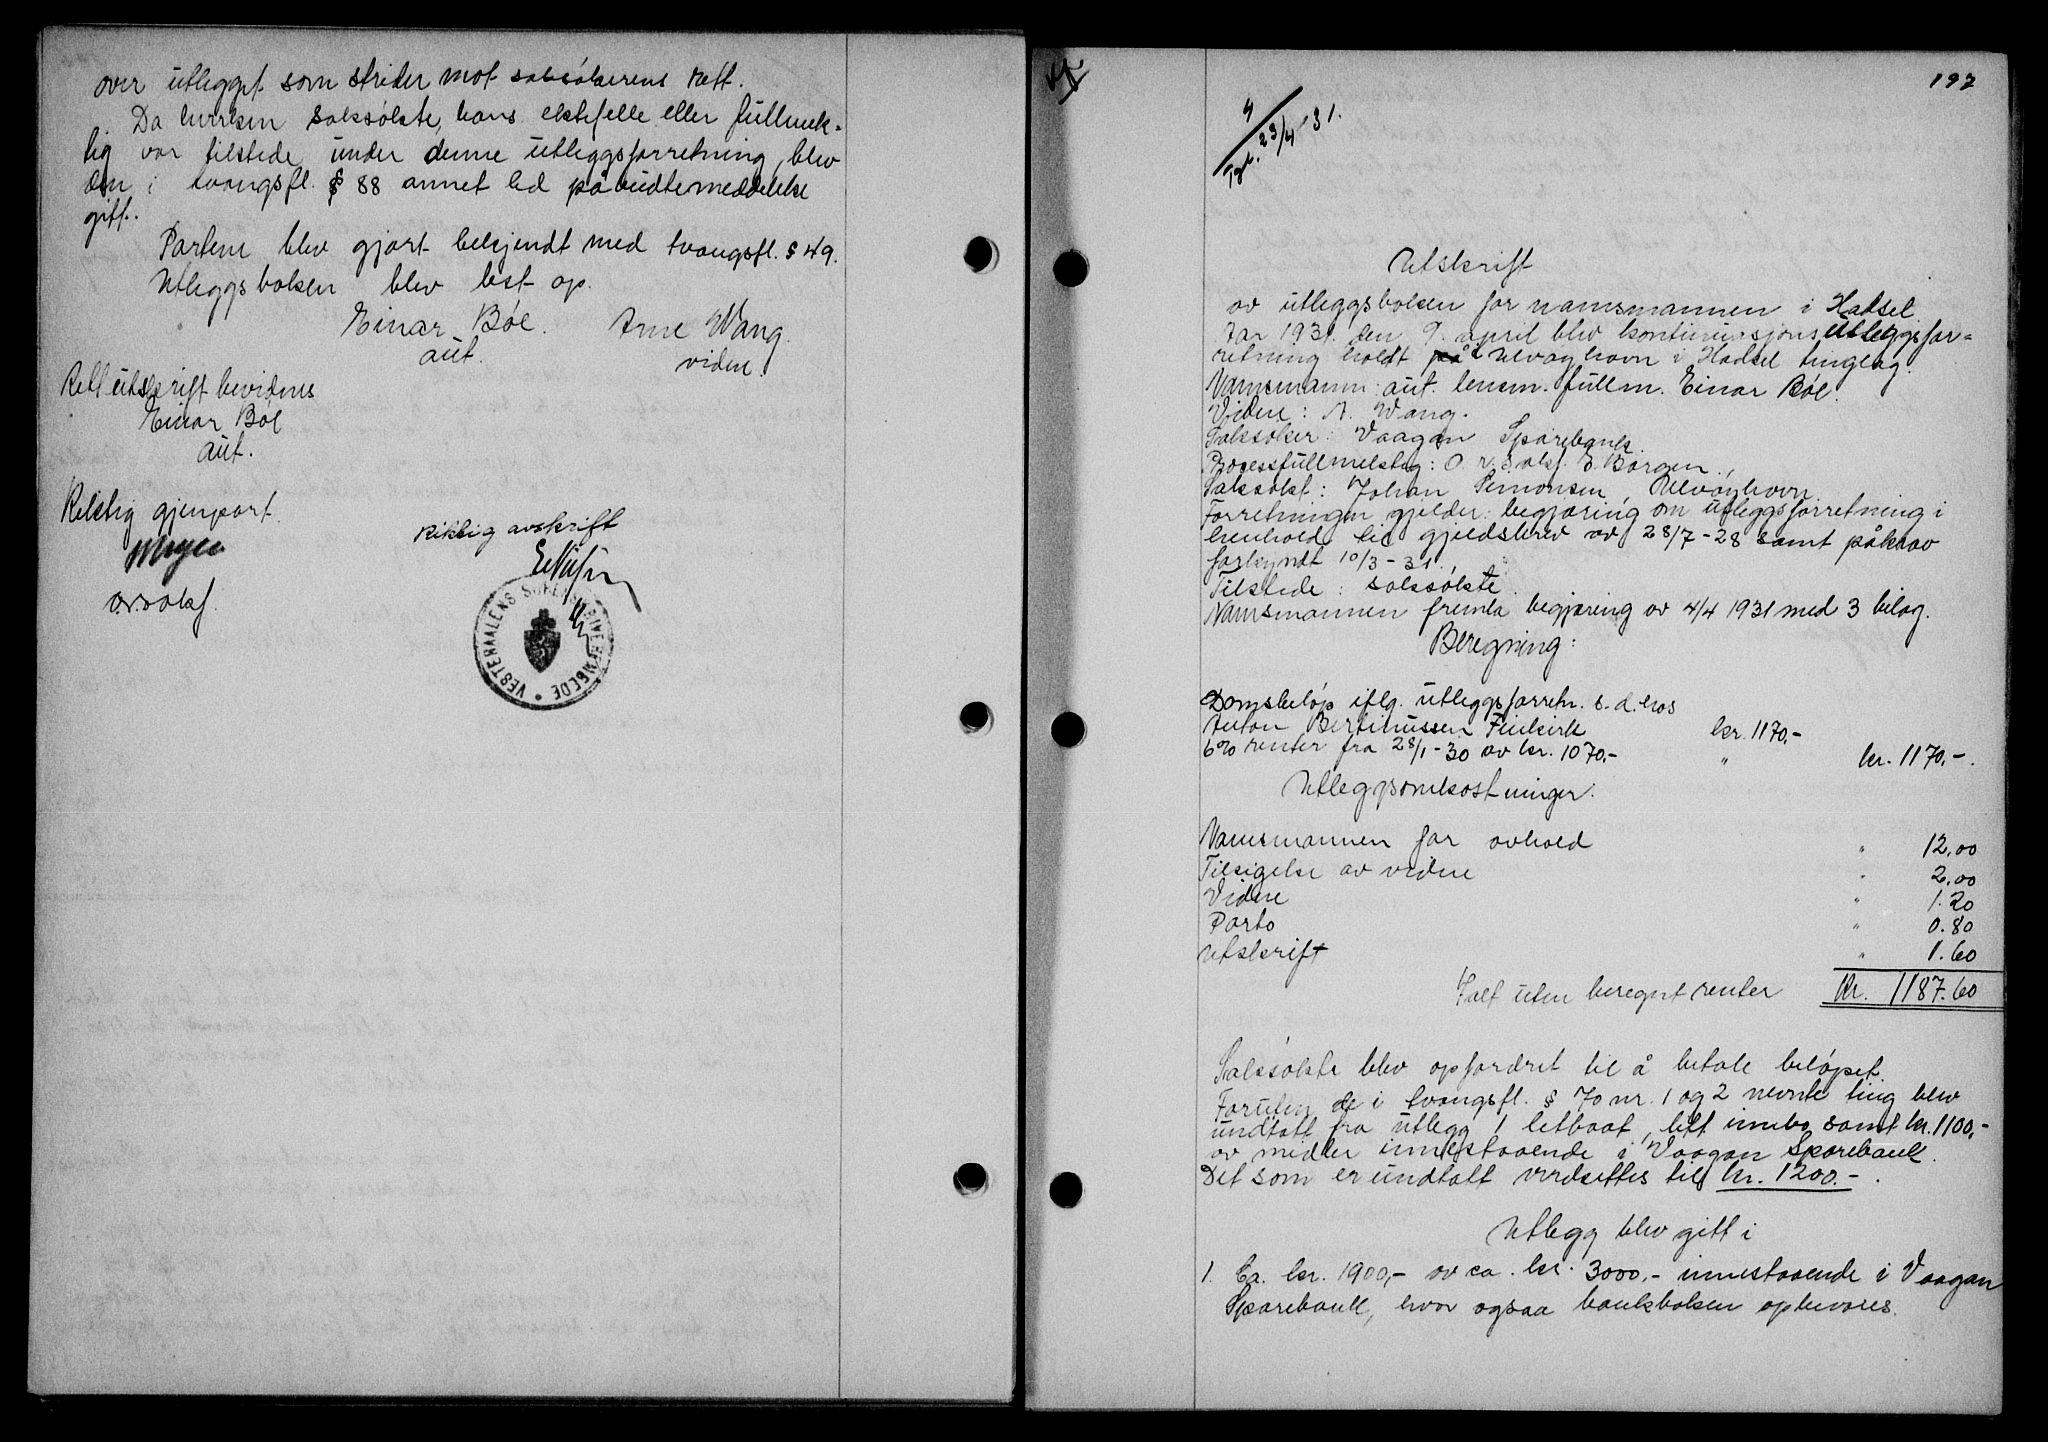 over utlegget som strider mot saksökerens rett.
Da hverken saksökte, hans ektefelle eller fullmek-
tig var tilstede under denne utleggsforretning, blev
den i tvangsfl. § 88 annet led påbudte meddelelse
gitt.
Partene blev gjort bekjendt med tvangsfl. § 49.
Utleggsboken blev lest op.
Einar Böe. Arne Wang.
aut. vidne.
Rett utskrift bevidnes
Einar Böe
aut.
Riktig gjenpart.
Meyer
o.r.sakf.
Riktig avskrift
VESTERAALENS SORENSKRIVEREMBEDE
197
4
Tgl. 23/4-31.
Utskrift
av utleggsboken for namsmannen i Hadsel.
Aar 1931. den 9. april blev kontinuasjonsutleggsfor-
retning holdt i Ulvöyhavn i Hadsel tinglag.
Namsmann: aut. lensm. fullm. Einar Böe.
Vidne: A. Wang.
Saksöker: Vaagan Sparebank.
Processfullmektig: O.r.sakf. E. Borgen.
Saksökt: Johan Simonsen, Ulvöyhavn.
Forretningen gjelder: begjæring om utleggsforretning i
henhold til gjeldsbrev av 28/7-28 samt påkrav
forkyndt 10/3-31.
Tilstede: saksökte.
Namsmannen fremla begjæring av 4/4 1931 med 3 bilag.
Beregning:
Domsbelöp iflg. utleggsforretn. s.d. hos
Anton Bertinussen Finkirk kr. 1170,-
6% renter fra 28/1-30 av kr. 1070,- " kr. 1170,-.
Utleggsomkostninger.
Namsmannen for avhold " 12,00
Tilsigelse av vidne " 2,00
Vidne " 1.20
Porto " 0.80
Utskrift " 1.60
Salt uten beregnet renter Kr. 1187.60
Saksökte blev opfordret til å betale belöpet.
Foruten de i tvangsfl. § 70 nr. 1 og 2 nevnte ting blev
undtatt fra utlegg 1 letbaat, litt innbo samt kr. 1100,-
av midler innestaaende i Vaagan Sparebank.
Det som er undtatt verdsettes til kr. 1200.-.
Utlegg blev gitt i
1. Ca. kr. 1900,- av ca. kr. 3000,- innestaaende i Vaagan
Sparebank, hvor ogsaa bankboken opbevares.